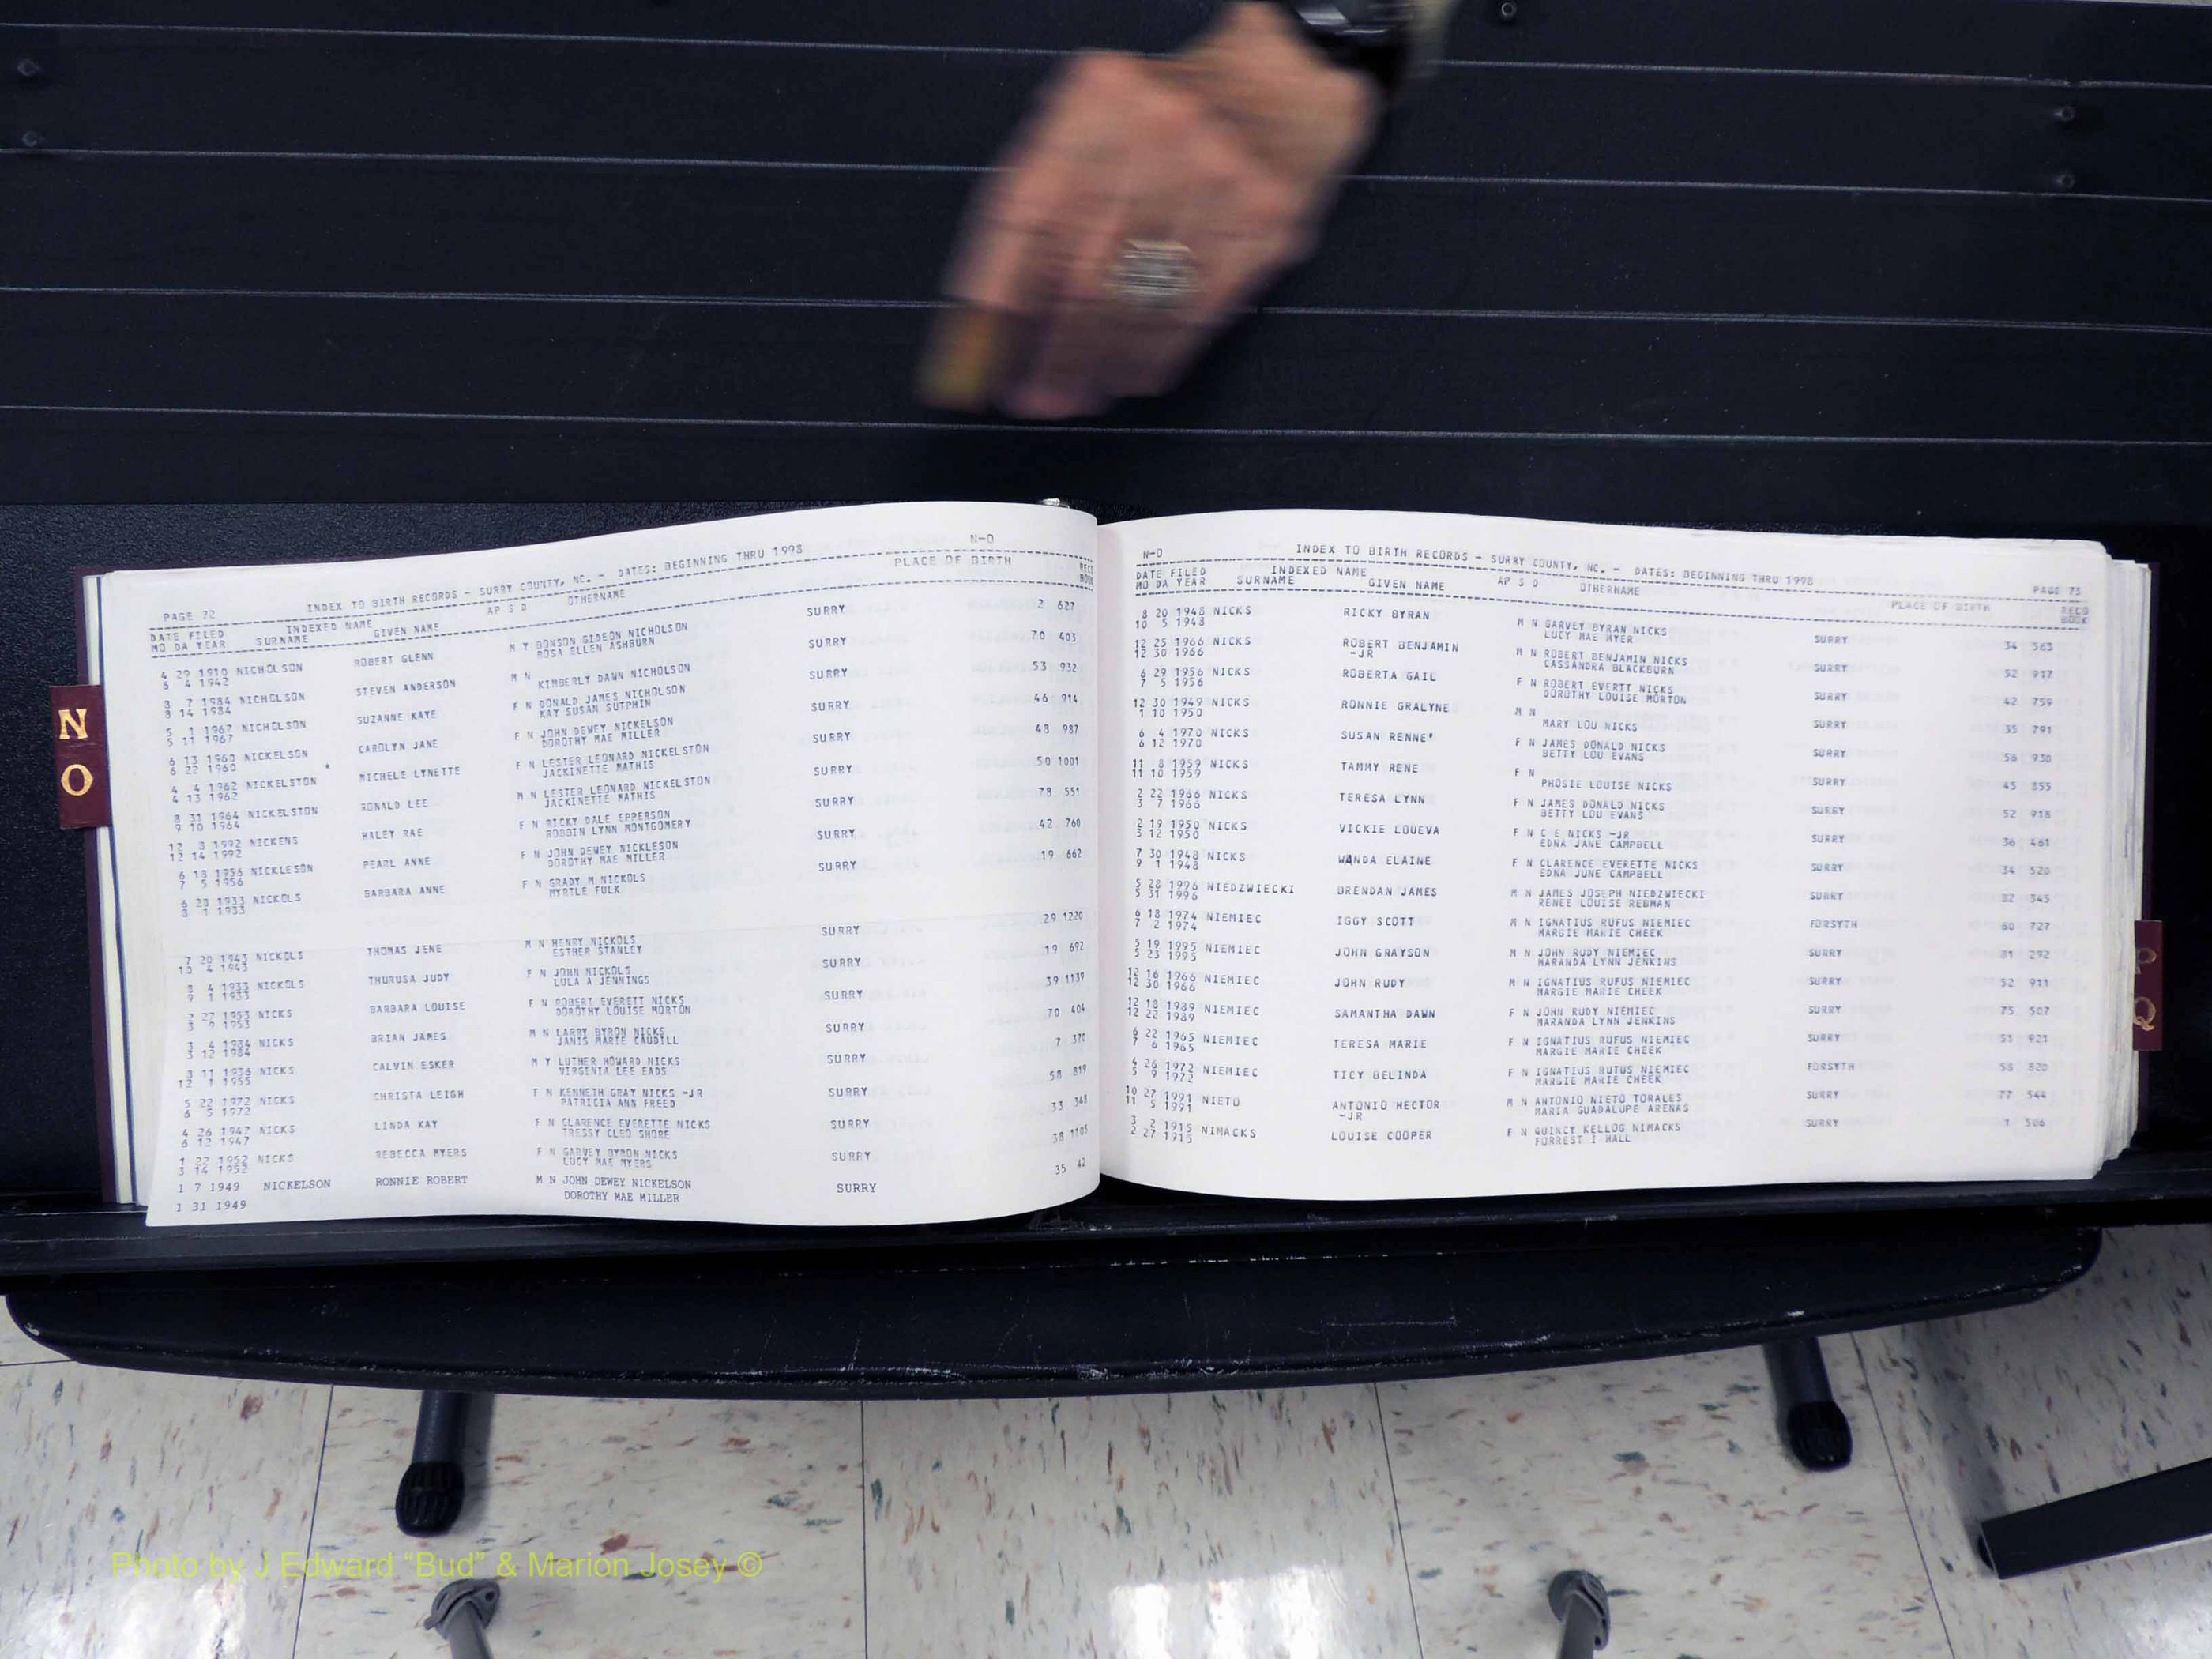 N
O
PAGE 72 INDEX TO BIRTH RECORDS - SURRY COUNTY, NC. - DATES: BEGINNING THRU 1998 N-O
DATE FILED INDEXED NAME AP S D OTHERNAME PLACE OF BIRTH
MO DA YEAR SURNAME GIVEN NAME BOOK
4 29 1910 NICHOLSON ROBERT GLENN M Y BONSON GIDEON NICHOLSON SURRY 2 627
6 4 1942 ROSA ELLEN ASHBURN
8 7 1984 NICHOLSON STEVEN ANDERSON M N SURRY 70 403
8 14 1984 KIMBERLY DAWN NICHOLSON
5 1 1967 NICHOLSON SUZANNE KAYE F N DONALD JAMES NICHOLSON SURRY 53 932
5 11 1967 KAY SUSAN SUTPHIN
6 13 1960 NICKELSON CAROLYN JANE F N JOHN DEWEY NICKELSON SURRY 46 914
6 22 1960 DOROTHY MAE MILLER
4 4 1962 NICKELSTON * MICHELE LYNETTE F N LESTER LEONARD NICKELSTON SURRY 48 987
4 13 1962 JACKINETTE MATHIS
8 31 1964 NICKELSTON RONALD LEE M N LESTER LEONARD NICKELSTON SURRY 50 1001
9 10 1964 JACKINETTE MATHIS
12 3 1992 NICKENS HALEY RAE F N RICKY DALE EPPERSON SURRY 78 551
12 14 1992 ROBBIN LYNN MONTGOMERY
6 18 1956 NICKLESON PEARL ANNE F N JOHN DEWEY NICKLESON SURRY 42 760
7 5 1956 DOROTHY MAE MILLER
6 28 1933 NICKOLS BARBARA ANNE F N GRADY M NICKOLS SURRY 19 662
8 1 1933 MYRTLE FULK
7 20 1943 NICKOLS THOMAS JENE M N HENRY NICKOLS SURRY 29 1220
10 4 1943 ESTHER STANLEY
8 4 1933 NICKOLS THURUSA JUDY F N JOHN NICKOLS SURRY 19 692
9 1 1933 LULA A JENNINGS
2 27 1953 NICKS BARBARA LOUISE F N ROBERT EVERETT NICKS SURRY 39 1139
3 9 1953 DOROTHY LOUISE MORTON
3 4 1984 NICKS BRIAN JAMES M N LARRY BYRON NICKS SURRY 70 404
3 12 1984 JANIS MARIE CAUDILL
8 11 1936 NICKS CALVIN ESKER M Y LUTHER HOWARD NICKS SURRY 7 370
12 1 1955 VIRGINIA LEE EADS
5 22 1972 NICKS CHRISTA LEIGH F N KENNETH GRAY NICKS -JR SURRY 58 819
6 5 1972 PATRICIA ANN FREED
4 26 1947 NICKS LINDA KAY F N CLARENCE EVERETTE NICKS SURRY 33 348
6 12 1947 TRESSY CLEO SHORE
1 22 1952 NICKS REBECCA MYERS F N GARVEY BYRON NICKS SURRY 38 1105
3 14 1952 LUCY MAE MYERS
1 7 1949 NICKELSON RONNIE ROBERT M N JOHN DEWEY NICKELSON SURRY 35 42
1 31 1949 DOROTHY MAE MILLER
N-O INDEX TO BIRTH RECORDS - SURRY COUNTY, NC. - DATES: BEGINNING THRU 1998 PAGE 73
DATE FILED INDEXED NAME AP S D OTHERNAME PLACE OF BIRTH RECO
MO DA YEAR SURNAME GIVEN NAME BOOK
8 20 1948 NICKS RICKY BYRAN M N GARVEY BYRAN NICKS SURRY 34 563
10 5 1948 LUCY MAE MYER
12 25 1966 NICKS ROBERT BENJAMIN M N ROBERT BENJAMIN NICKS SURRY 52 917
12 30 1966 -JR CASSANDRA BLACKBURN
6 29 1956 NICKS ROBERTA GAIL F N ROBERT EVERTT NICKS SURRY 42 759
7 5 1956 DOROTHY LOUISE MORTON
12 30 1949 NICKS RONNIE GRALYNE M N SURRY 35 791
1 10 1950 MARY LOU NICKS
6 4 1970 NICKS SUSAN RENNE* F N JAMES DONALD NICKS SURRY 56 930
6 12 1970 BETTY LOU EVANS
11 8 1959 NICKS TAMMY RENE F N SURRY 45 855
11 10 1959 PHOSIE LOUISE NICKS
2 22 1966 NICKS TERESA LYNN F N JAMES DONALD NICKS SURRY 52 918
3 7 1966 BETTY LOU EVANS
2 19 1950 NICKS VICKIE LOUEVA F N C E NICKS -JR SURRY 36 461
3 12 1950 EDNA JANE CAMPBELL
7 30 1948 NICKS WANDA ELAINE F N CLARENCE EVERETTE NICKS SURRY 34 520
9 1 1948 EDNA JUNE CAMPBELL
5 28 1996 NIEDZWIECKI BRENDAN JAMES M N JAMES JOSEPH NIEDZWIECKI SURRY 82 345
5 31 1996 RENEE LOUISE REDMAN
6 18 1974 NIEMIEC IGGY SCOTT M N IGNATIUS RUFUS NIEMIEC FORSYTH 60 727
7 2 1974 MARGIE MARIE CHEEK
5 19 1995 NIEMIEC JOHN GRAYSON M N JOHN RUDY NIEMIEC SURRY 81 292
5 23 1995 MARANDA LYNN JENKINS
12 16 1966 NIEMIEC JOHN RUDY M N IGNATIUS RUFUS NIEMIEC SURRY 52 911
12 30 1966 MARGIE MARIE CHEEK
12 18 1989 NIEMIEC SAMANTHA DAWN F N JOHN RUDY NIEMIEC SURRY 75 507
12 22 1989 MARANDA LYNN JENKINS
6 22 1965 NIEMIEC TERESA MARIE F N IGNATIUS RUFUS NIEMIEC SURRY 51 921
7 6 1965 MARGIE MARIE CHEEK
4 26 1972 NIEMIEC TICY BELINDA F N IGNATIUS RUTUS NIEMIEC FORSYTH 58 820
5 9 1972 MARGIE MARIE CHEEK
10 27 1991 NIETO ANTONIO HECTOR M N ANTONIO NIETO TORALES SURRY 77 544
11 5 1991 -JR MARIA GUADALUPE ARENAS
3 2 1915 NIMACKS LOUISE COOPER F N QUINCY KELLOG NIMACKS SURRY 1 506
2 27 1915 FORREST I HALL
Photo by J Edward “Bud” & Marion Josey ©